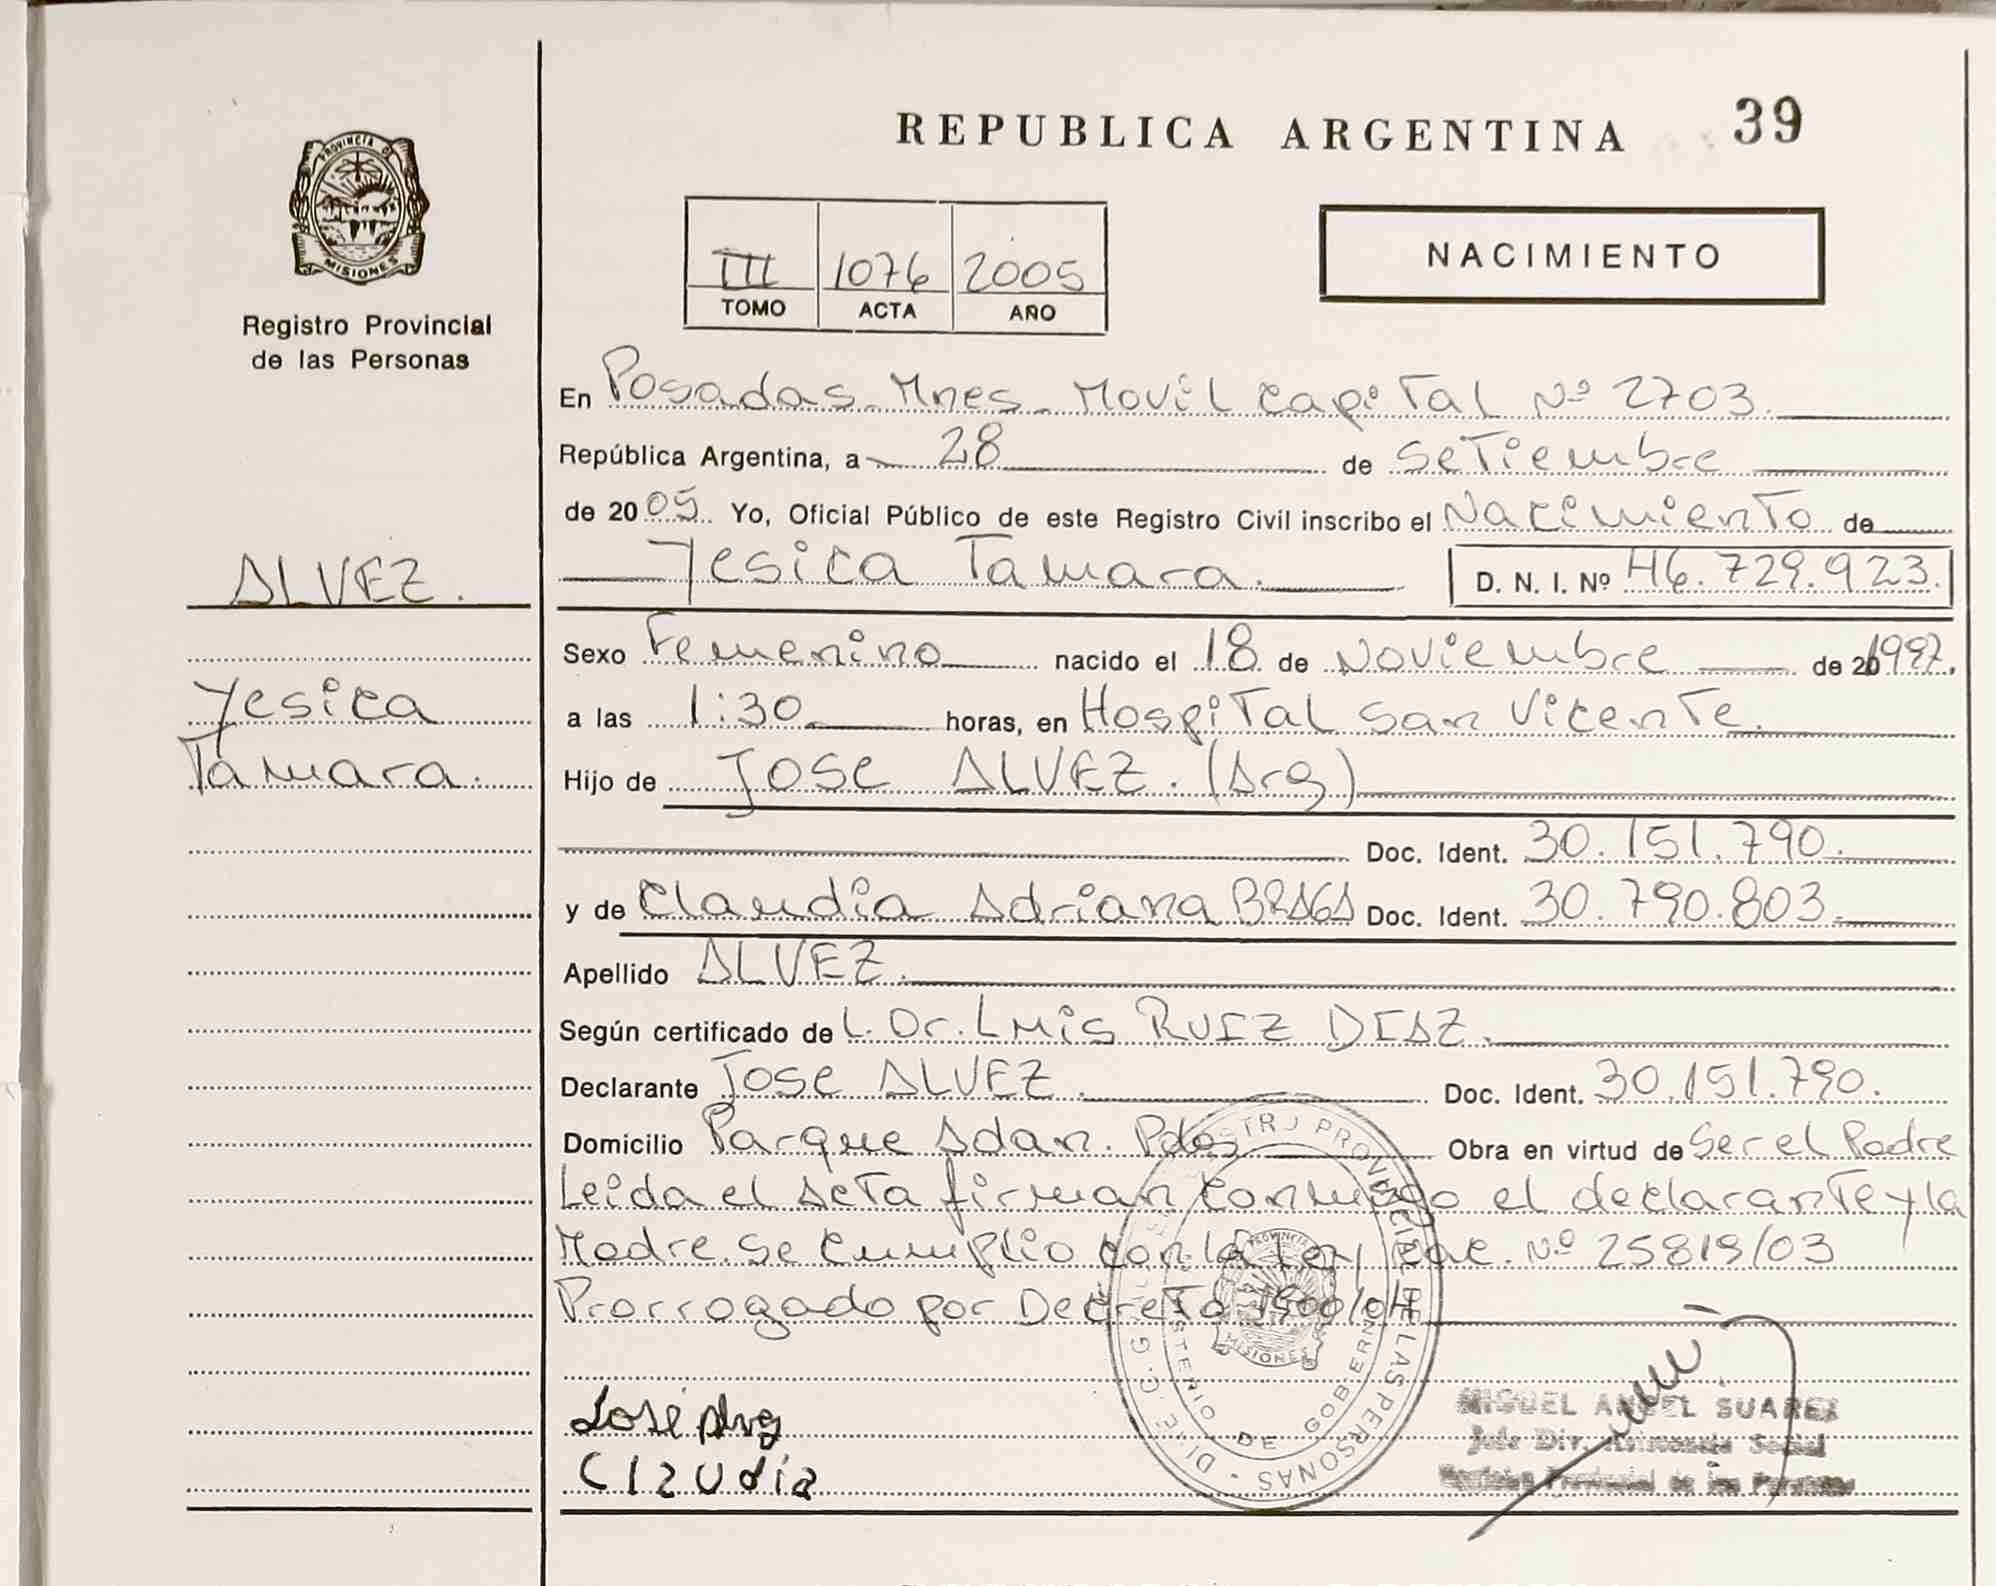 REPUBLICA ARGENTINA 39
PROVINCIA DE
MISIONES
Registro Provincial
de las Personas
III 1076 2005
TOMO ACTA AÑO
NACIMIENTO
En Posadas. Mnes. Movil Capital Nº 2703.
República Argentina, a 28 de Setiembre
de 2005. Yo, Oficial Público de este Registro Civil inscribo el Nacimiento de
Yesica Tamara. D. N. I. Nº 46.729.923.
ALVEZ.
Yesica
Tamara.
Sexo Femenino nacido el 18 de Noviembre de 20 1997.
a las 1:30 horas, en Hospital San Vicente.
Hijo de Jose ALVEZ. (Arg)
Doc. Ident. 30.151.790.
y de Claudia Adriana BRAGA Doc. Ident. 30.790.803.
Apellido ALVEZ.
Según certificado de L. Dr. Luis RUIZ DIAZ.
Declarante Jose ALVEZ. Doc. Ident. 30.151.790.
Domicilio Parque Adan. Pdas Obra en virtud de Ser el Padre
Leida el Acta firman conmigo el declarante y la
Madre. Se Cumplio con la Ley Nac. Nº 25819/03
Prorrogado por Decreto 1900/04
José Alvz
Claudia
REGISTRO PROVINCIAL DE LAS PERSONAS
MINISTERIO DE GOBIERNO
PROVINCIA
MISIONES
MIGUEL ANGEL SUAREZ
Jefe Div. Asistencia Social
Registro Provincial de las Personas